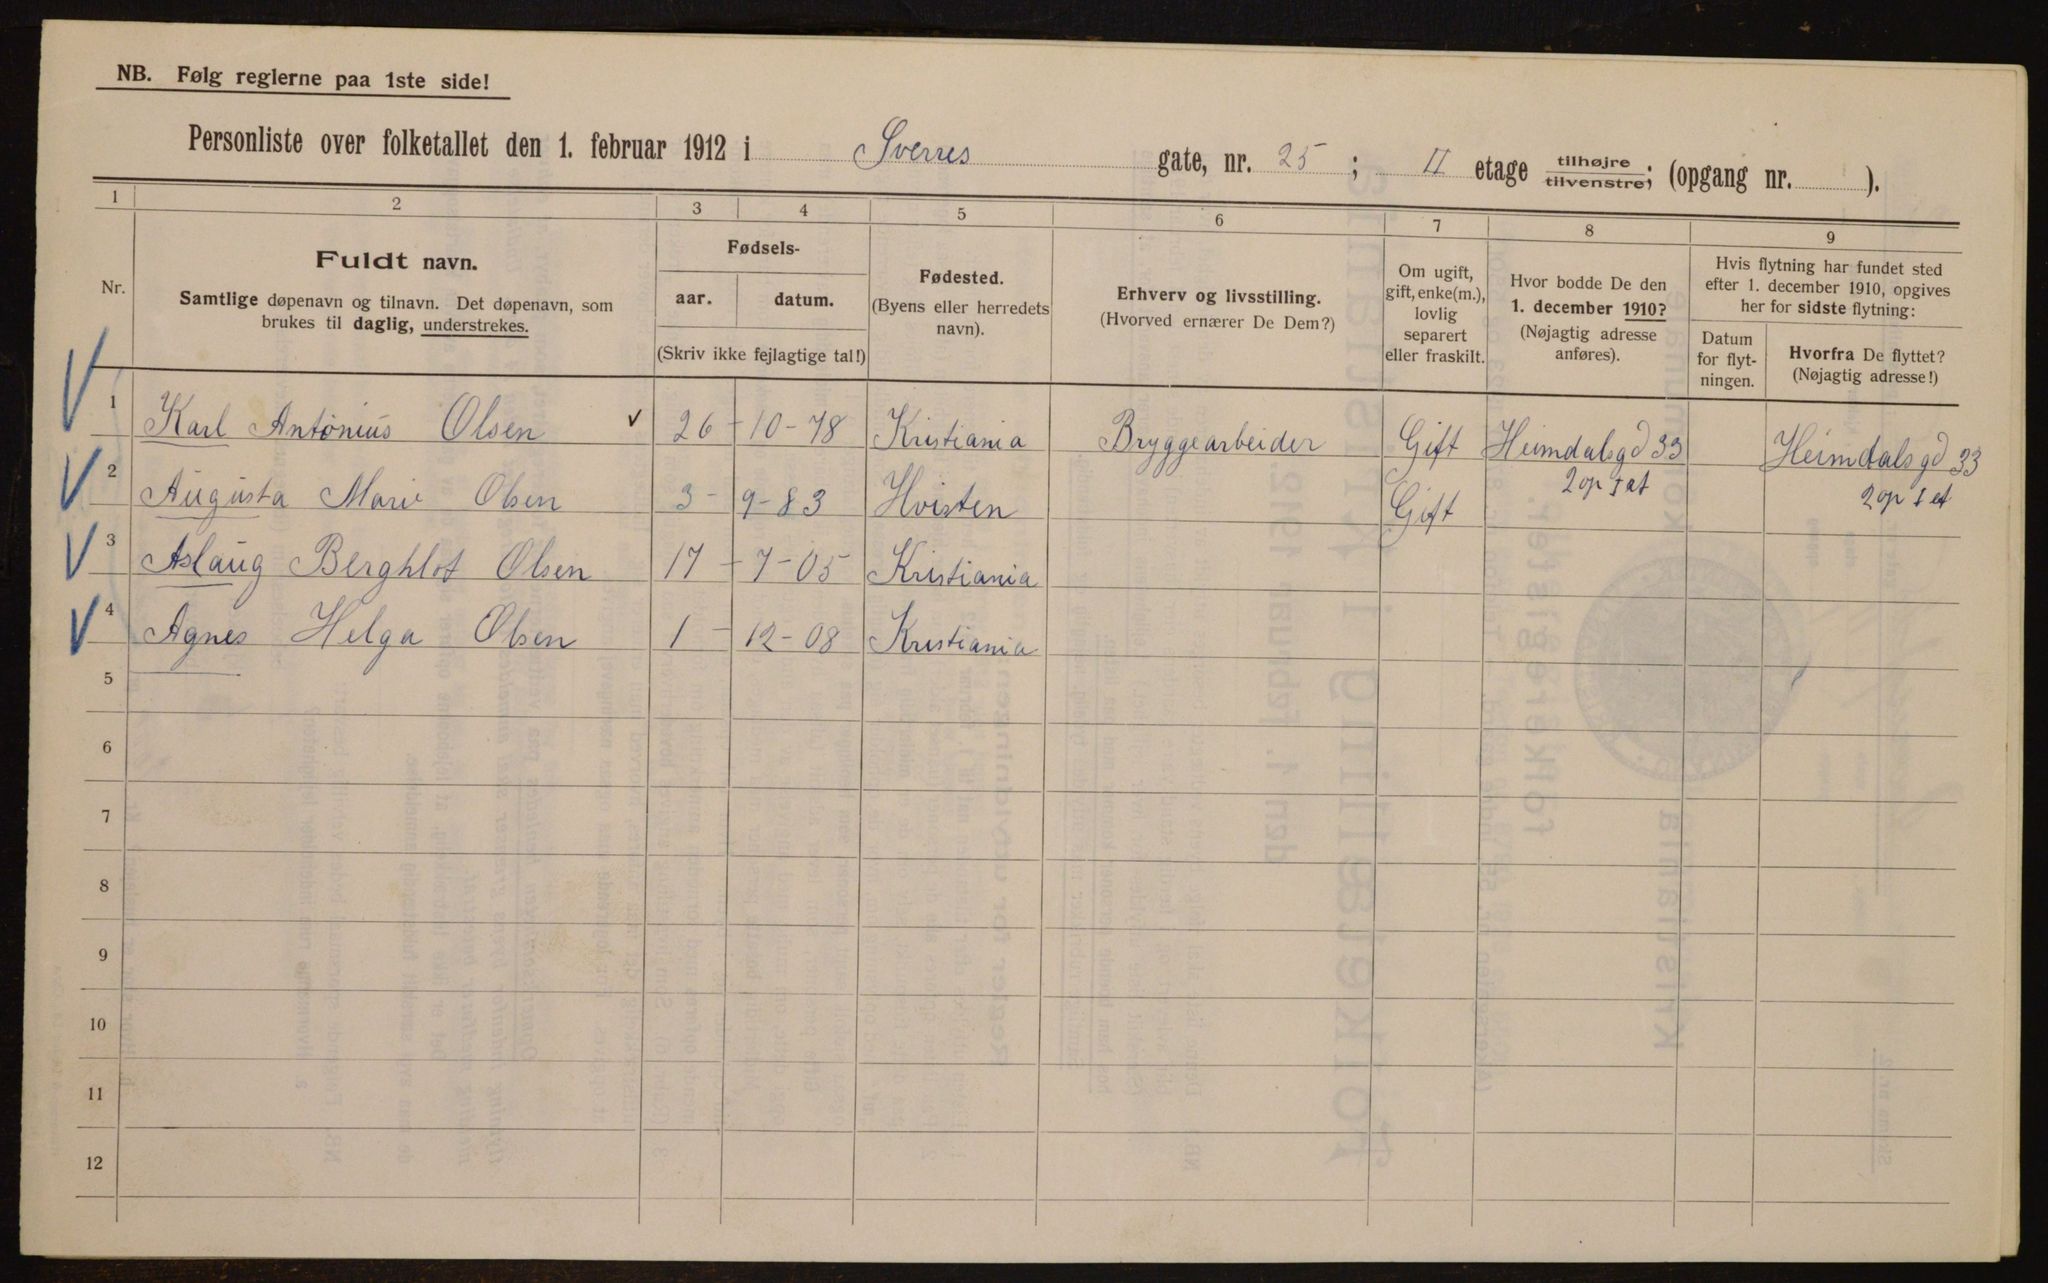 NB. Følg reglerne paa 1ste side!
Personliste over folketallet den 1. februar 1912 i Sverres gate, nr. 25; II etage tilhøjre tilvenstre; (opgang nr. ).
1 2 3 4 5 6 7 8 9
Nr.
Fuldt navn.
Samtlige døpenavn og tilnavn. Det døpenavn, som
brukes til daglig, understrekes.
Fødsels-
aar. datum.
(Skriv ikke fejlagtige tal!)
Fødested.
(Byens eller herredets
navn).
Erhverv og livsstilling.
(Hvorved ernærer De Dem?)
Om ugift,
gift, enke(m.),
lovlig
separert
eller fraskilt.
Hvor bodde De den
1. december 1910?
(Nøjagtig adresse
anføres).
Hvis flytning har fundet sted
efter 1. december 1910, opgives
her for sidste flytning:
Datum
for flyt-
ningen.
Hvorfra De flyttet?
(Nøjagtig adresse!)
1 Karl Antonius Olsen 26 - 10 - 78 Kristiania Bryggearbeider Gift Heimdalsgd 33 Heimdalsgd 33
2 op 1 et 2 op 1 et
2 Augusta Marie Olsen 3 - 9 - 83 Hvisten Gift
3 Aslaug Berghlot Olsen 17 - 7 - 05 Kristiania
4 Agnes Helga Olsen 1 - 12 - 08 Kristiania
5
6
7
8
9
10
11
12